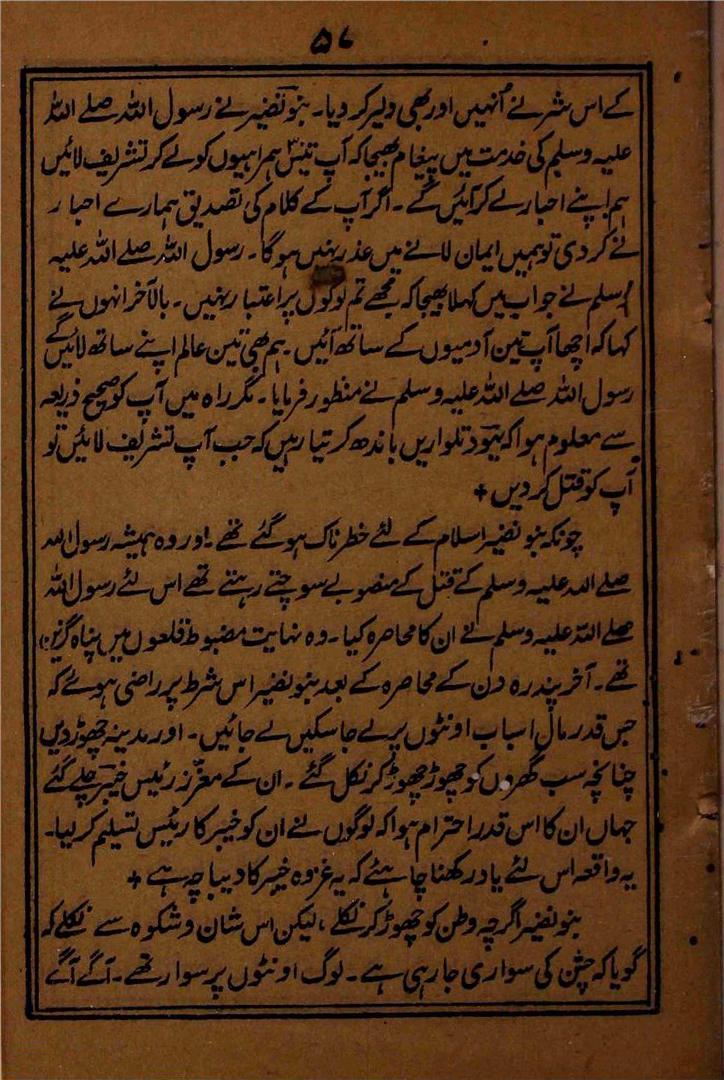 ۵۷
کے اس شر نے اُنہیں اور بھی دلیر کر دیا۔ بنو نضیر نے رسول اللہ صلے اللہ
علیہ وسلم کی خدمت میں پیغام بھیجا کہ آپ تیس۳۰ ہمراہیوں کو لے کر تشریف لائیں
ہم اپنے احبار لے کر آئیں گے۔ اگر آپ کے کلام کی تصدیق ہمارے احبار
نے کر دی تو ہمیں ایمان لانے میں عذر نہیں ہوگا۔ رسول اللہ صلے اللہ علیہ
وسلم نے جواب میں کہلا بھیجا کہ مجھے تم لوگوں پر اعتبار نہیں۔ بالآخر انہوں نے
کہا کہ اچھا آپ تین آدمیوں کے ساتھ آئیں۔ ہم بھی تین عالم اپنے ساتھ لائیں گے
رسول اللہ صلے اللہ علیہ وسلم نے منظور فرمایا۔ مگر راہ میں آپ کو صحیح ذریعہ
سے معلوم ہوا کہ یہود تلواریں باندھ کر تیار ہیں کہ جب آپ تشریف لائیں تو
آپ کو قتل کر دیں +
چونکہ بنو نضیر اسلام کے لئے خطرناک ہو گئے تھے۔ اور وہ ہمیشہ رسول اللہ
صلے اللہ علیہ وسلم کے قتل کے منصوبے سوچتے رہتے تھے اس لئے رسول اللہ
صلے اللہ علیہ وسلم نے ان کا محاصرہ کیا۔ وہ نہایت مضبوط قلعوں میں پناہ گزین
تھے۔ آخر پندرہ دن کے محاصرہ کے بعد بنو نضیر اس شرط پر راضی ہوئے کہ
جس قدر مال اسباب اونٹوں پر لے جا سکیں لے جائیں۔ اور مدینہ چھوڑ دیں
چنانچہ سب گھروں کو چھوڑ چھوڑ کر نکل گئے۔ ان کے معزز رئیس خیبر چلے گئے
جہاں ان کا اس قدر احترام ہوا کہ لوگوں نے ان کو خیبر کا رئیس تسلیم کر لیا۔
یہ واقعہ اس لئے یاد رکھنا چاہئے کہ یہ غزوہ خیبر کا دیباچہ ہے +
بنو نضیر اگرچہ وطن کو چھوڑ کر نکلے، لیکن اس شان و شکوہ سے نکلے کہ
گویا کہ جشن کی سواری جا رہی ہے۔ لوگ اونٹوں پر سوار تھے۔ آگے آگے